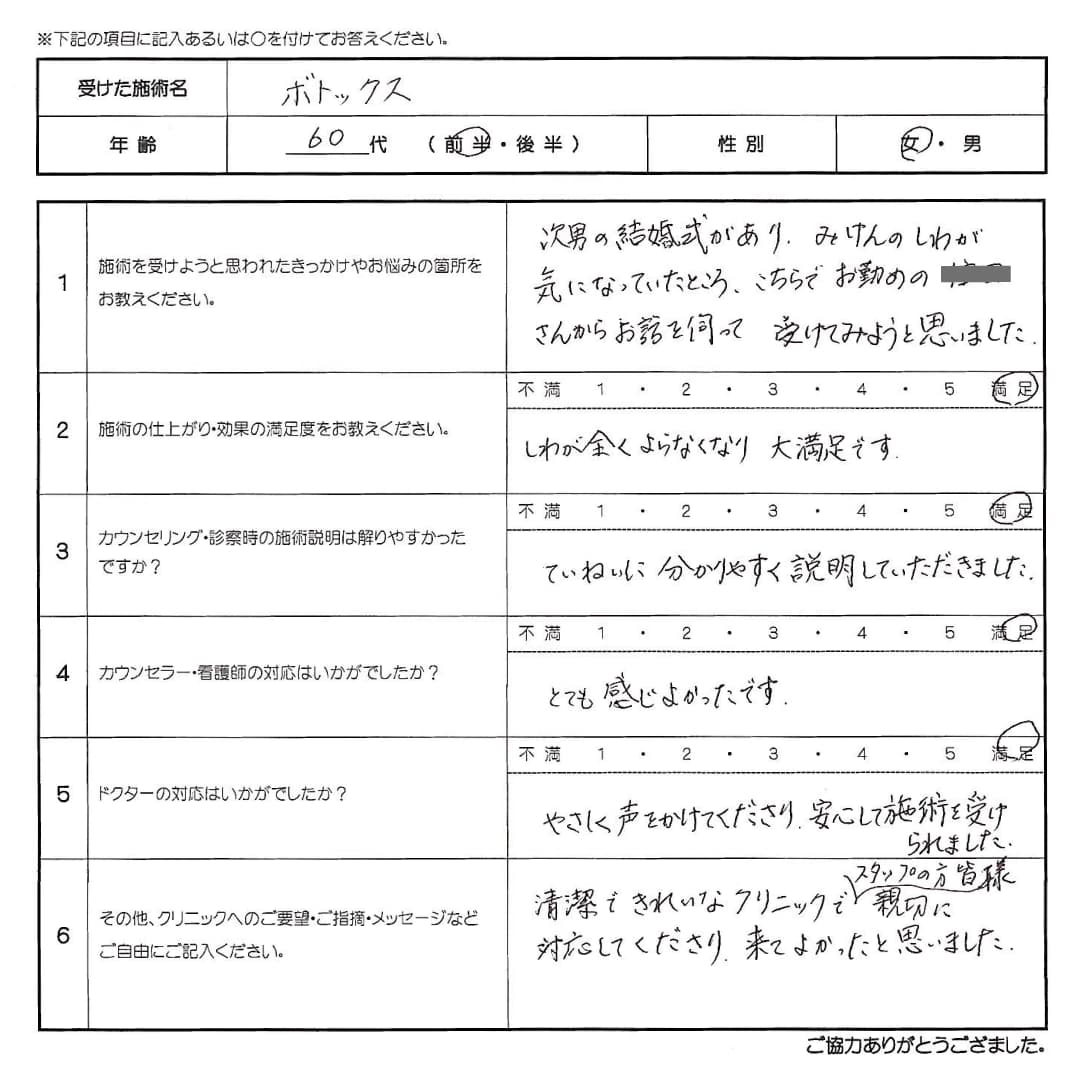 ※下記の項目に記入あるいは○を付けてお答えください。
受けた施術名 ボトックス
年齢 60代 (前半・後半) 性別 女・男
1 施術を受けようと思われたきっかけやお悩みの箇所を
お教えください。
次男の結婚式があり、みけんのしわが
気になっていたところ、こちらでお勤めの
さんからお話を伺って 受けてみようと思いました。
2 施術の仕上がり・効果の満足度をお教えください。
不満 1 ・ 2 ・ 3 ・ 4 ・ 5 満足
しわが全くよらなくなり 大満足です。
3 カウンセリング・診察時の施術説明は解りやすかった
ですか?
不満 1 ・ 2 ・ 3 ・ 4 ・ 5 満足
ていねいに 分かりやすく説明していただきました。
4 カウンセラー・看護師の対応はいかがでしたか?
不満 1 ・ 2 ・ 3 ・ 4 ・ 5 満足
とても感じよかったです。
5 ドクターの対応はいかがでしたか?
不満 1 ・ 2 ・ 3 ・ 4 ・ 5 満足
やさしく声をかけてくださり、安心して施術を受け
られました。
6 その他、クリニックへのご要望・ご指摘・メッセージなど
ご自由にご記入ください。
スタッフの方皆様
清潔できれいなクリニックで 親切に
対応してくださり、来てよかったと思いました。
ご協力ありがとうございました。